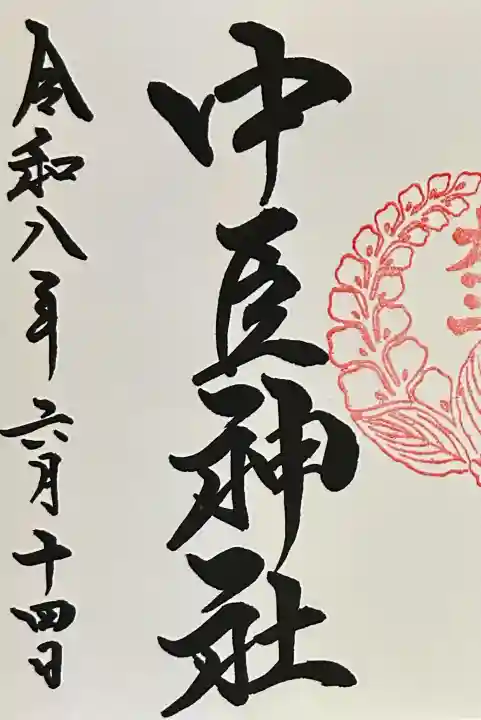 中臣神社
令和八年六月十四日